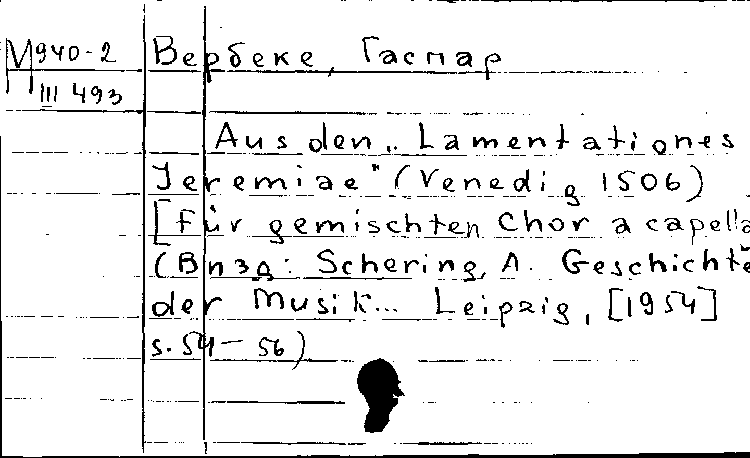 М940-2 Вербеке, Гаспар
III 493
Aus den „Lamentationes
Jeremiae" (Venedig 1506)
[Für gemischten Chor a capella
(В изд: Schering, A. Geschichte
der Musik... Leipzig, [1954]
s. 54-56)